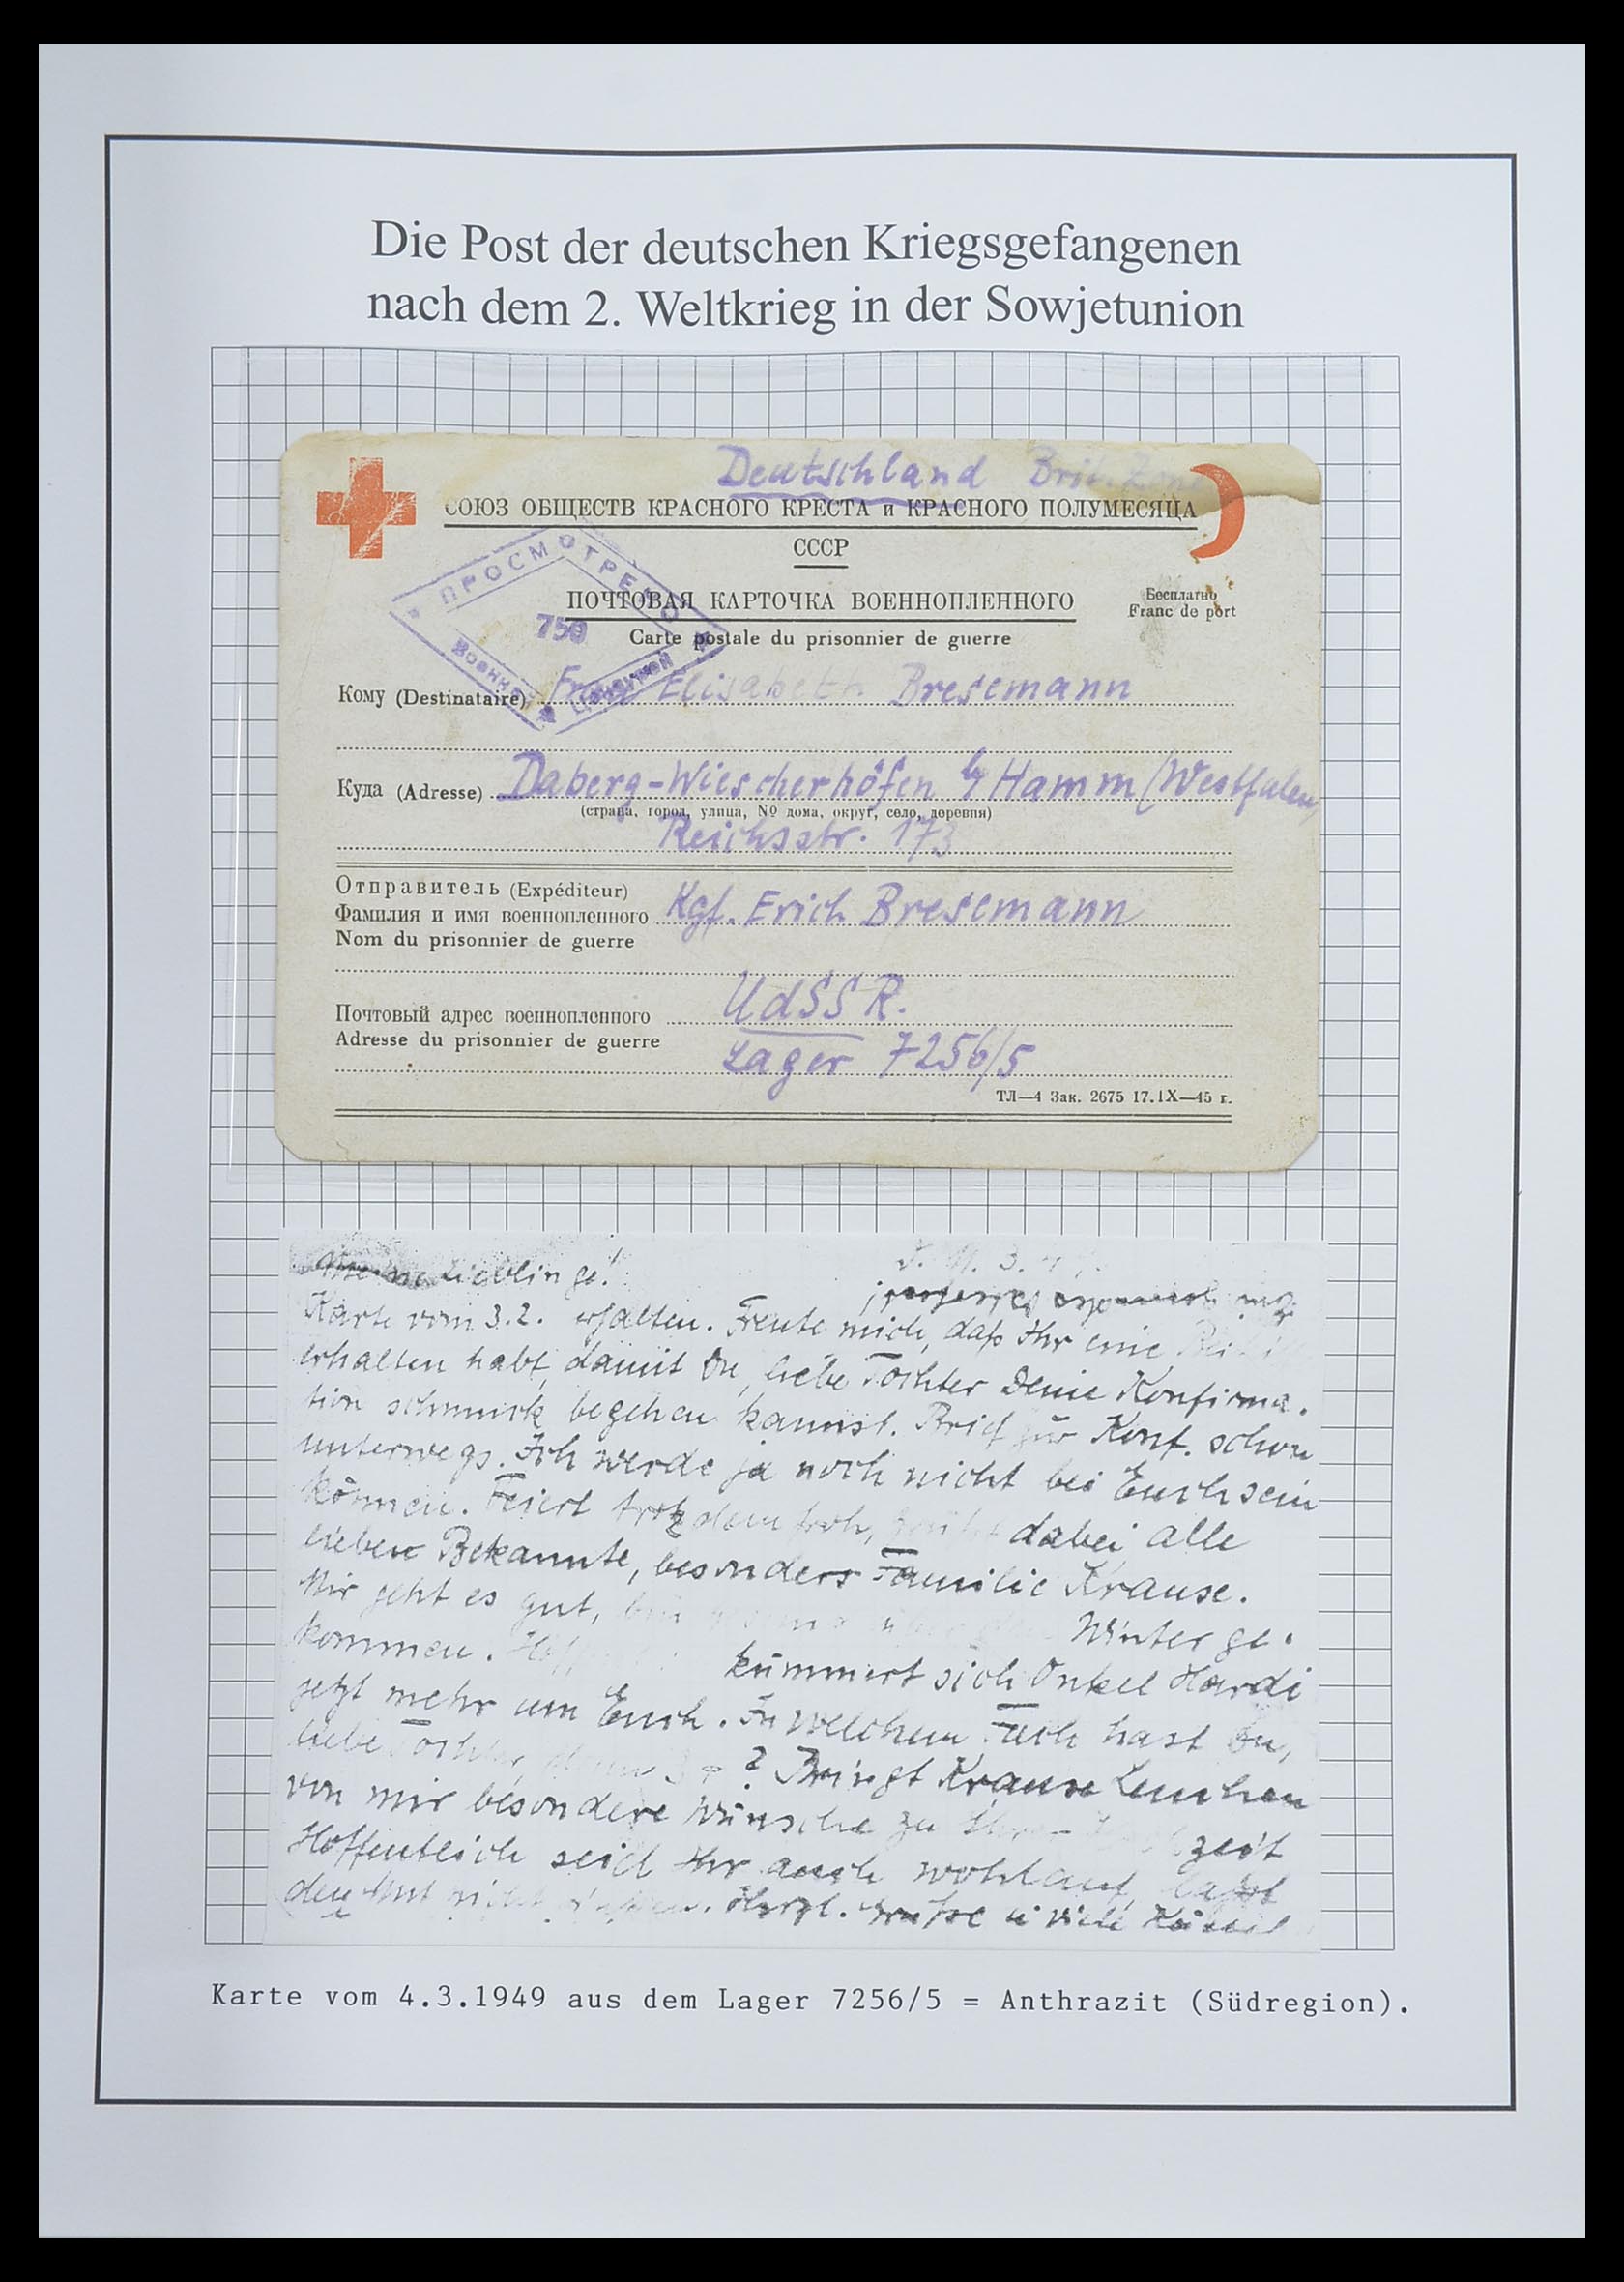 Die Post der deutschen Kriegsgefangenen
nach dem 2. Weltkrieg in der Sowjetunion
Deutschland Brit. Zone
СОЮЗ ОБЩЕСТВ КРАСНОГО КРЕСТА и КРАСНОГО ПОЛУМЕСЯЦА
СССР
ПРОСМОТРЕНО
750
Военной Цензурой
ПОЧТОВАЯ КАРТОЧКА ВОЕННОПЛЕННОГО
Бесплатно
Franc de port
Carte postale du prisonnier de guerre
Кому (Destinataire) Frau Elisabeth Bresemann
Куда (Adresse) Daberg-Wiescherhöfen b/ Hamm (Westfalen)
(страна, город, улица, № дома, округ, село, деревня)
Reichsstr. 173
Отправитель (Expéditeur)
Фамилия и имя военнопленного Kgf. Erich Bresemann
Nom du prisonnier de guerre
Почтовый адрес военнопленного UdSSR.
Adresse du prisonnier de guerre Lager 7256/5
ТЛ—4 Зак. 2675 17.IX—45 г.
Meine Lieblinge!
Karte vom 3.2. erhalten. Freute mich, daß Ihr eine
erhalten habt, damit Du, liebe Tochter Deine Konfirma-
tion schmuck begehen kannst. Brief zur Konf. schon
unterwegs. Ich werde ja noch nicht bei Euch sein
können. Feiert trotzdem froh, dabei alle
lieben Bekannte, besonders Familie Krause.
Mir geht es gut, bin Winter ge-
kommen. kümmert sich Onkel Hardi
jetzt mehr um Euch. In welchem Fach hast Du,
liebe Tochter, ? Bringt Krause Lenchen
von mir besondere Wünsche zu zeit
Hoffentlich seid Ihr auch wohlauf, laßt
den Mut nicht Herzl. Grüße u viele
Karte vom 4.3.1949 aus dem Lager 7256/5 = Anthrazit (Südregion).